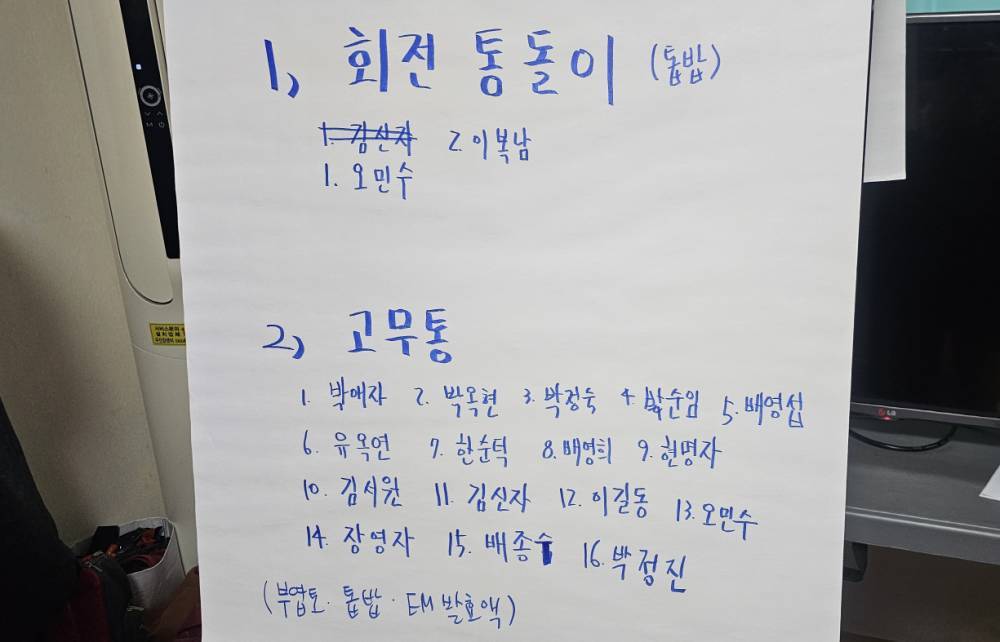 1, 회전 통돌이 (톱밥)
1. 김신자 2. 이복남
1. 오민수
2, 고무통
1. 박애자 2. 박옥현 3. 박정숙 4. 박순임 5. 배영섭
6. 유옥연 7. 한순덕 8. 배영희 9. 현명자
10. 김서원 11. 김신자 12. 이길동 13. 오민수
14. 장영자 15. 배종수 16. 박정진
(부엽토 · 톱밥 · EM 발효액)
LG